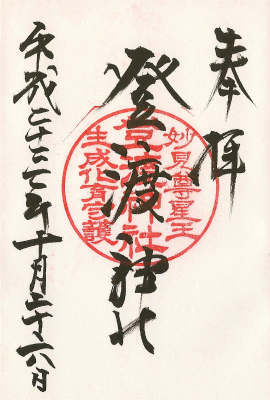 奉拝
登渡神社
妙見尊星王
登渡神社
生成化育守護
平成二十三年十月二十六日